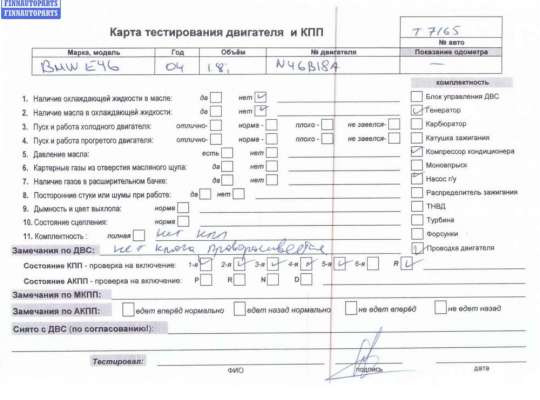 FINNAUTOPARTS
FINNAUTOPARTS
Карта тестирования двигателя и КПП
Т 7165
№ авто
Марка, модель Год Объём № двигателя Показание одометра
BMW E46 04 1.8i N46B18A —
комплектность
Блок управления ДВС
1. Наличие охлаждающей жидкости в масле: да нет
Генератор
2. Наличие масла в охлаждающей жидкости: да нет
Карбюратор
3. Пуск и работа холодного двигателя: отлично- норма - плохо - не завелся-
Катушка зажигания
4. Пуск и работа прогретого двигателя: отлично- норма - плохо - не завелся-
Компрессор кондиционера
5. Давление масла: есть нет
Моновпрыск
6. Картерные газы из отверстия масляного щупа: да нет
Насос г/у
7. Наличие газов в расширительном бачке: да нет
Распределитель зажигания
8. Посторонние стуки или шумы при работе: да нет
ТНВД
9. Дымность и цвет выхлопа: норма
Турбина
10. Состояние сцепления: норма
Форсунки
11. Комплектность : полная нет КПП
Проводка двигателя
Замечания по ДВС: нет ключа проворачивается
Состояние КПП - проверка на включение: 1-я 2-я 3-я 4-я 5-я 6-я R
Состояние АКПП - проверка на включение: P R N D
Замечания по МКПП:
Замечания по АКПП: едет вперёд нормально едет назад нормально не едет вперёд не едет назад
Снято с ДВС (по согласованию!):
Тестировал:
ФИО подпись дата